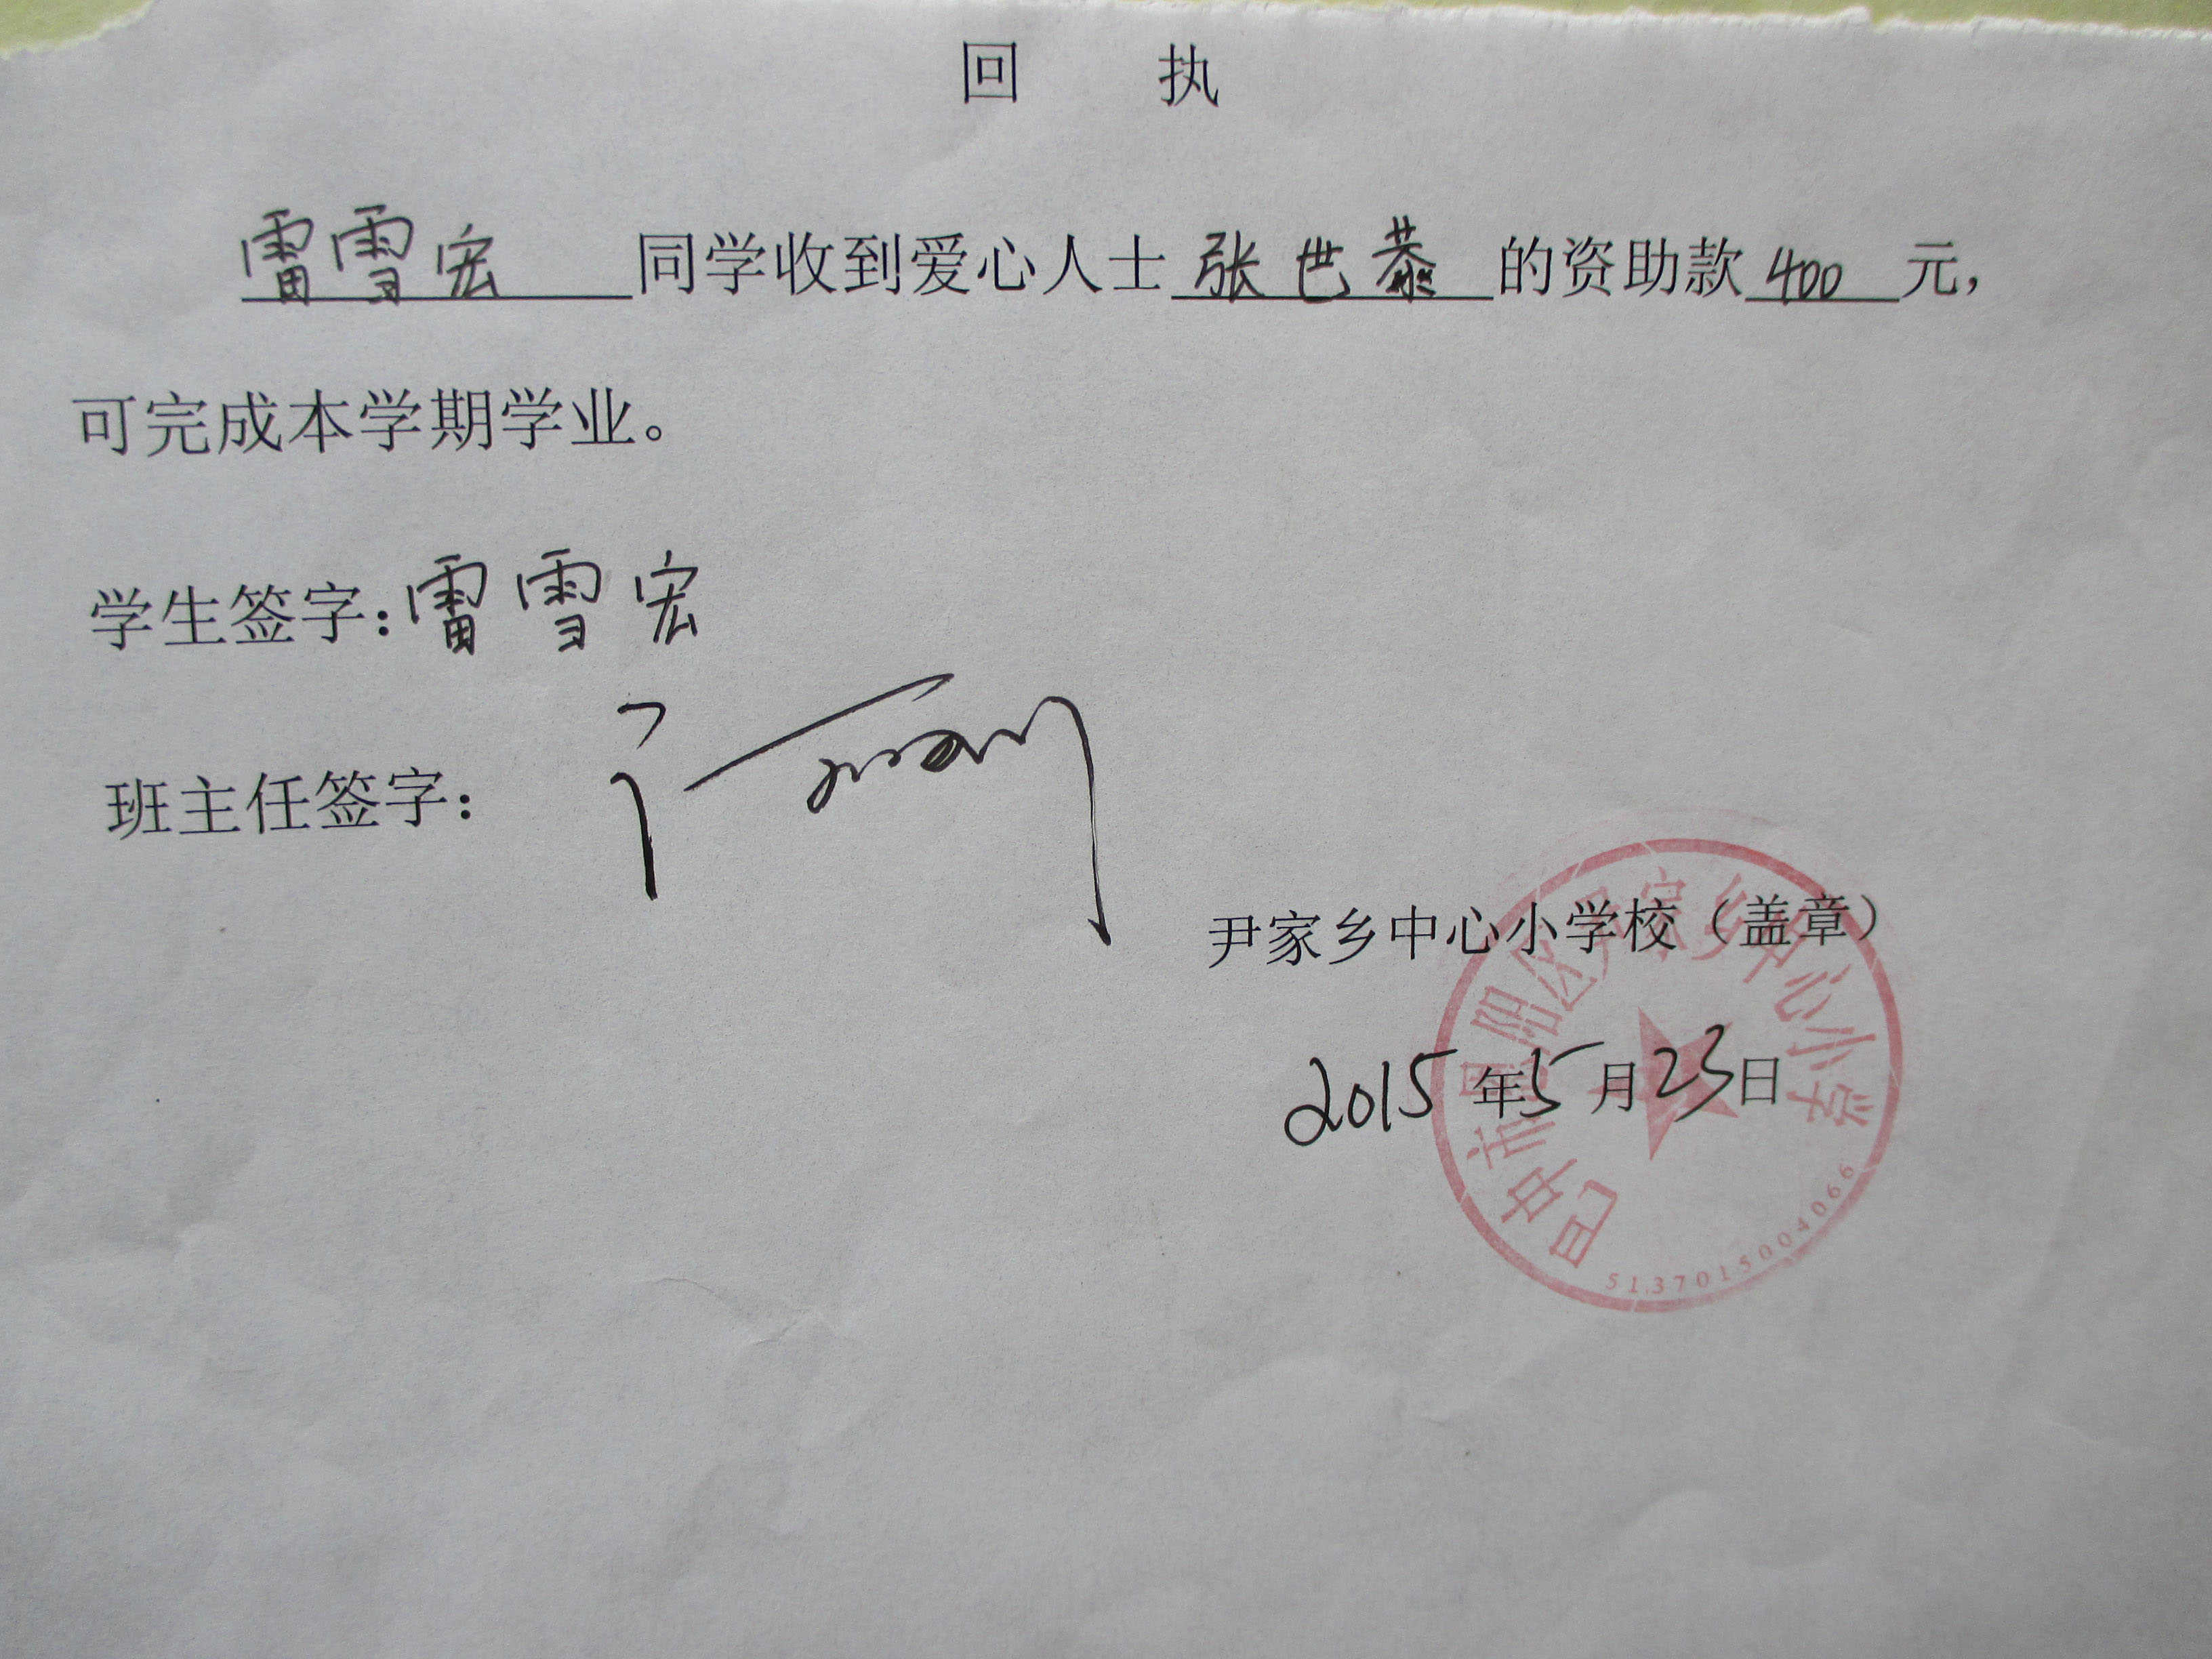 回 执
雷雪宏 同学收到爱心人士 张世恭 的资助款 400 元,
可完成本学期学业。
学生签字:雷雪宏
班主任签字:
尹家乡中心小学校（盖章）
2015年5月23日
巴中市恩阳区尹家乡中心小学
5137015004066